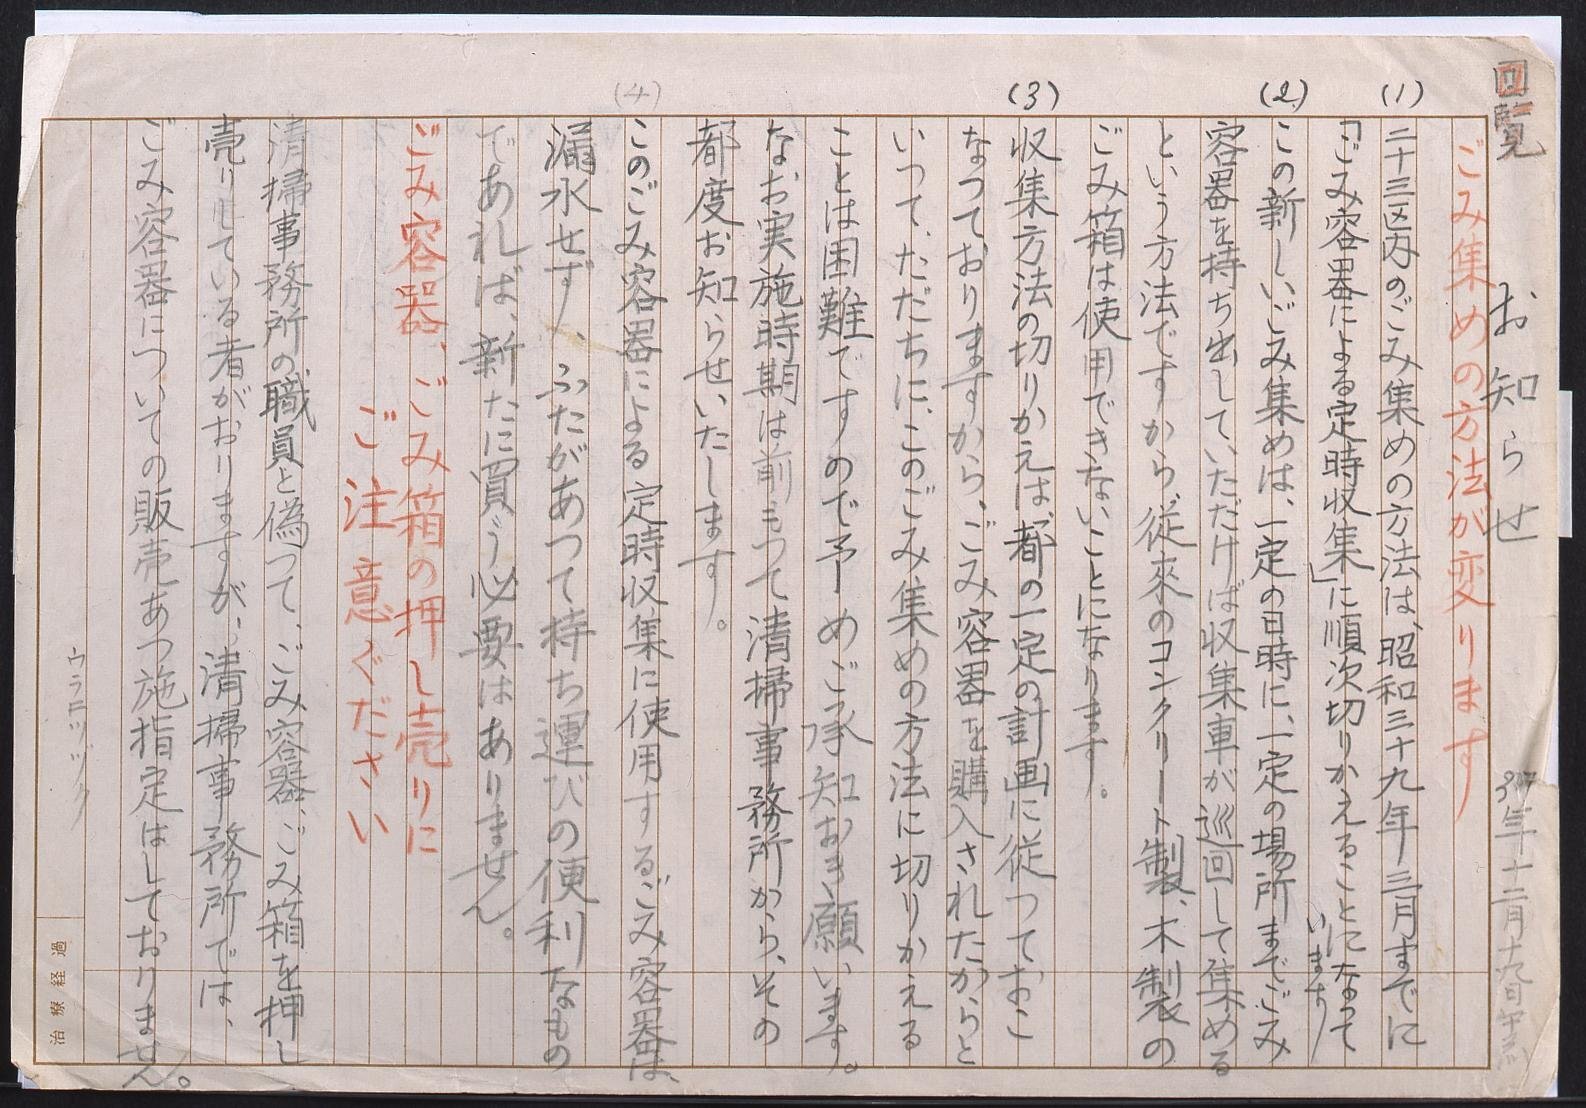 回覧 お知らせ 37年十二月十九日
ごみ集めの方法が変ります
(1) 二十三区内のごみ集めの方法は、昭和三十九年三月までに
「ごみ容器による定時収集」に順次切りかえることになって
います
(2) この新しいごみ集めは、一定の日時に、一定の場所までごみ
容器を持ち出していただけば収集車が巡回して集める
という方法ですから、従來のコンクリート製、木製の
ごみ箱は使用できないことになります。
(3) 収集方法の切りかえは、都の一定の計画に従つておこ
なつておりますから、ごみ容器を購入されたからと
いつて、ただちに、このごみ集めの方法に切りかえる
ことは困難ですので予めご承知おき願います。
なお実施時期は前もつて清掃事務所から、その
都度お知らせいたします。
(4) このごみ容器による定時収集に使用するごみ容器は、
漏水せず、ふたがあつて持ち運びの便利なもの
であれば、新たに買う必要はありません。
ごみ容器、ごみ箱の押し売りに
ご注意ください
清掃事務所の職員と偽つて、ごみ容器、ごみ箱を押し
売りしている者がおりますが、清掃事務所では、
ごみ容器についての販売あつ施指定はしておりません。
ウラニツヅク
治療経過